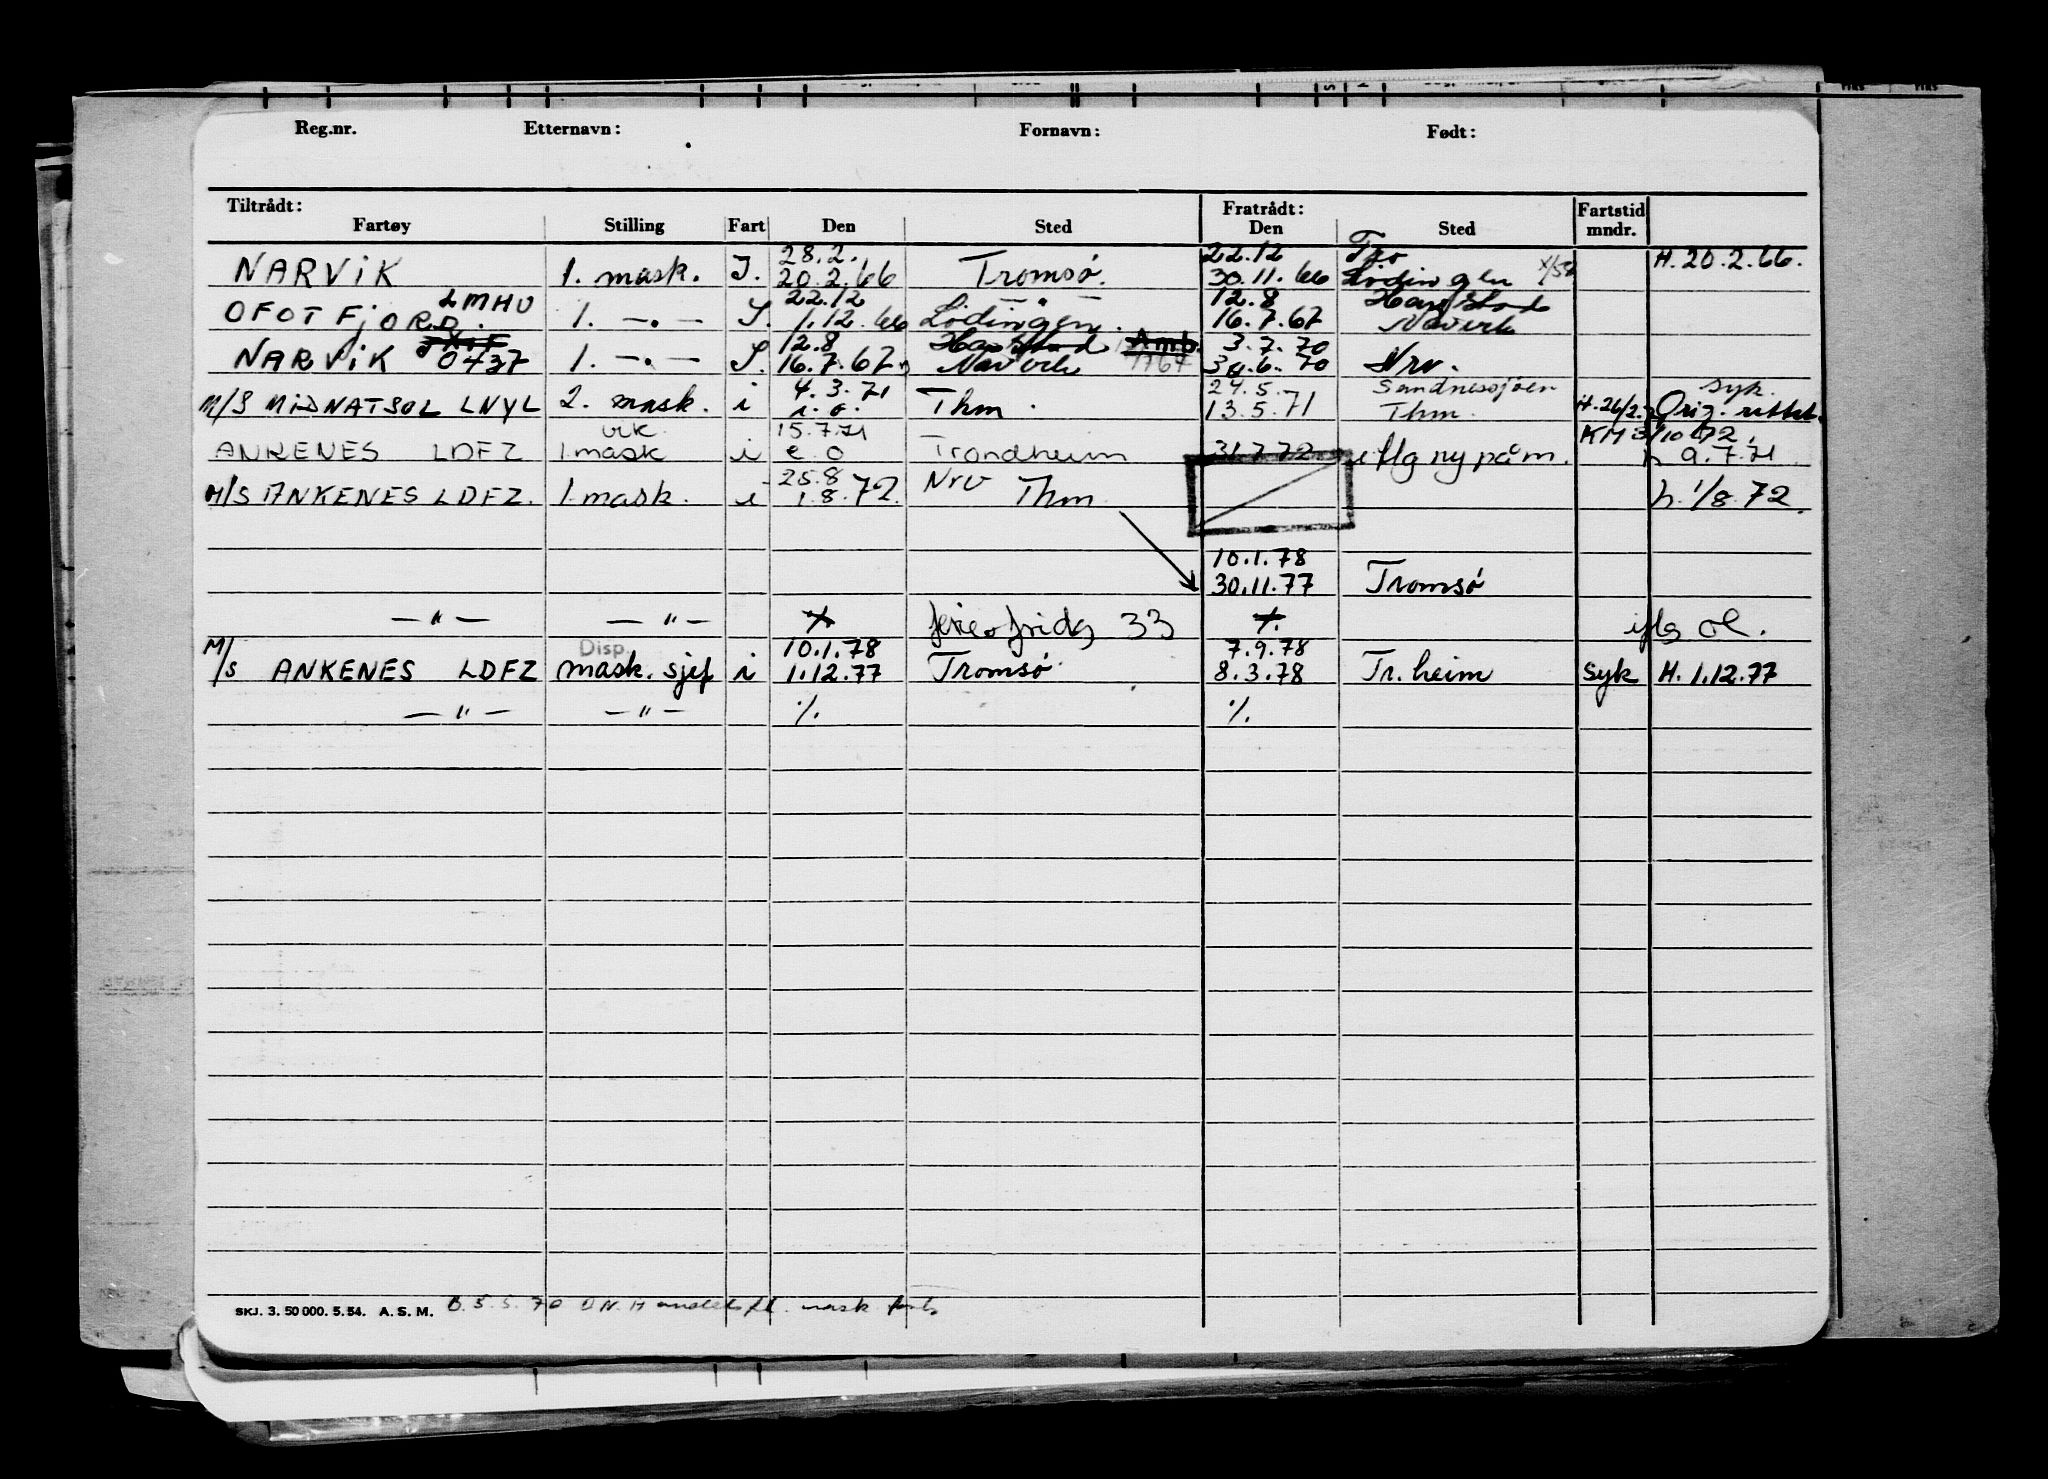 Reg.nr. Etternavn: Fornavn: Født:
Tiltrådt: Fratrådt: Fartstid
Fartøy Stilling Fart Den Sted Den Sted mndr.
28.2. 22.12 Tro
NARVIK 1. mask. I. 20.2.66 Tromsø. 30.11.66 Lödingen H. 20.2.66.
LMHU 22.12 12.8 Harstad
OFOTFJORD. 1. —.— I. 1.12.66 Lödingen. 16.7.67 Narvik
12.8 Harstad Amb. 3.7.70
NARVIK 0737 1. —.— I. 16.7.67 Narvik 1767 30.6.70 Nrv.
4.3.71 24.5. Sandnessjøen syk.
M/S MIDNATSOL LNYL 2. mask. i i.o. Thm. 13.5.71 Thm. H.26/2. Orig. rettet.
vik 15.7.71 KM 3/10 72.
ANKENES LDFZ 1 mask i e.o Trondheim 31.7.72 iflg ny påm. h 9.7.71
25.8 Nrv
M/S ANKENES LDFZ. 1 mask. i 1.8.72. Thm h. 1/8.72.
10.1.78
30.11.77 Tromsø
— " — — " — ⁒ ferie o frida 33 ⁒ iflg ol.
Disp. 10.1.78 7.9.78
M/S ANKENES LDFZ mask. sjef i 1.12.77 Tromsø 8.3.78 Tr.heim syk H. 1.12.77
— " — — " — ⁒ ⁒
SKJ. 3. 50 000. 5. 54. A. S. M. B. 5.5.70 D.N. Handelsfl. mask